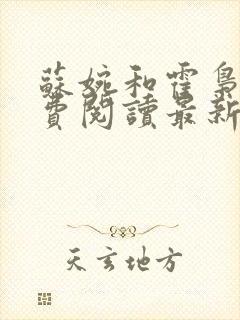 蘇婉和霍梟
費閱讀最新
天玄地方